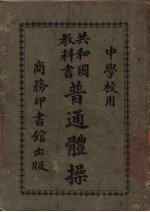 中學校用
共和國
教科書
普通體操
商務印書館出版